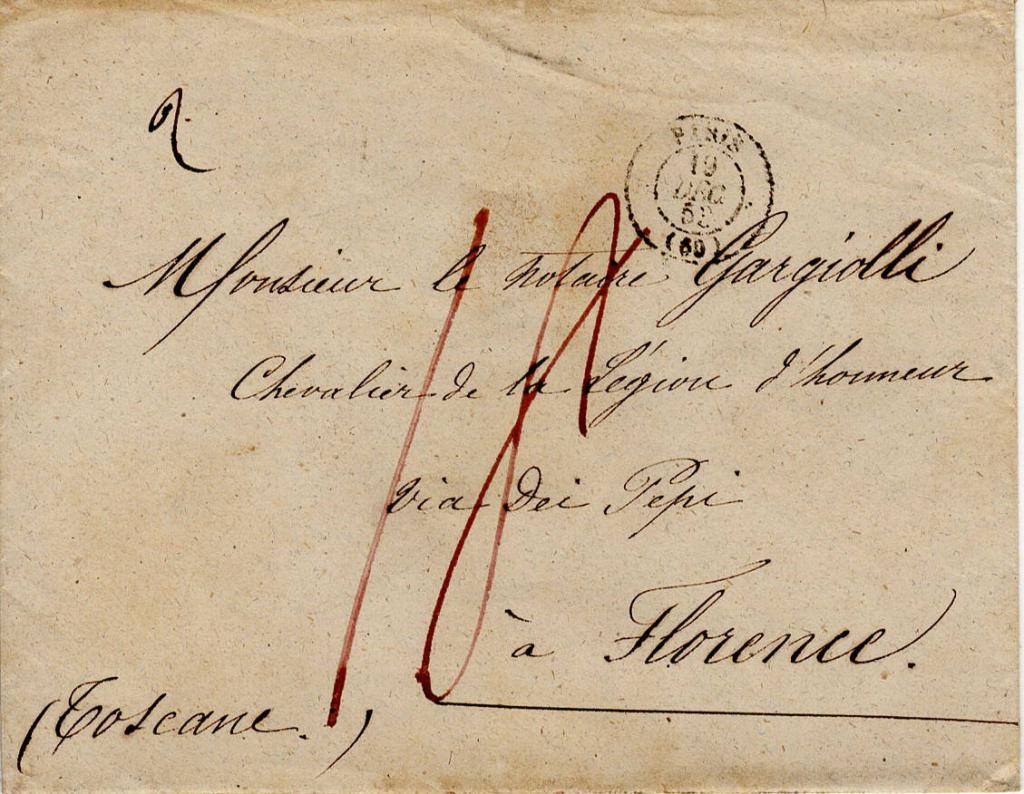 2
PARIS
19
DEC
52
(60)
Monsieur le notaire Gargiolli
Chevalier de la Légion d'honneur
via Dei Pepi
à Florence.
(Toscane.)
18